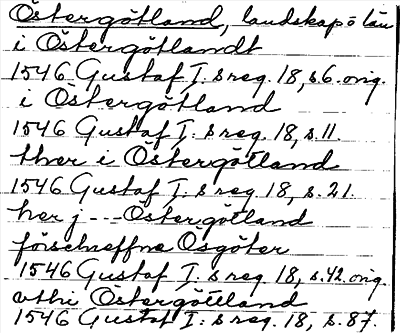 Östergötland, landskap o län
i Östergötlandt
1546 Gustaf I:s reg. 18, s.6. orig.
i Östergötland
1546 Gustaf I:s reg. 18, s.11.
ther i Östergötland
1546 Gustaf I:s reg. 18, s.21.
her j --- Östergötland
förschreffne Osgöter
1546 Gustaf I:s reg. 18, s.42. orig.
vthi Östergöttland
1546 Gustaf I:s reg. 18, s.87.